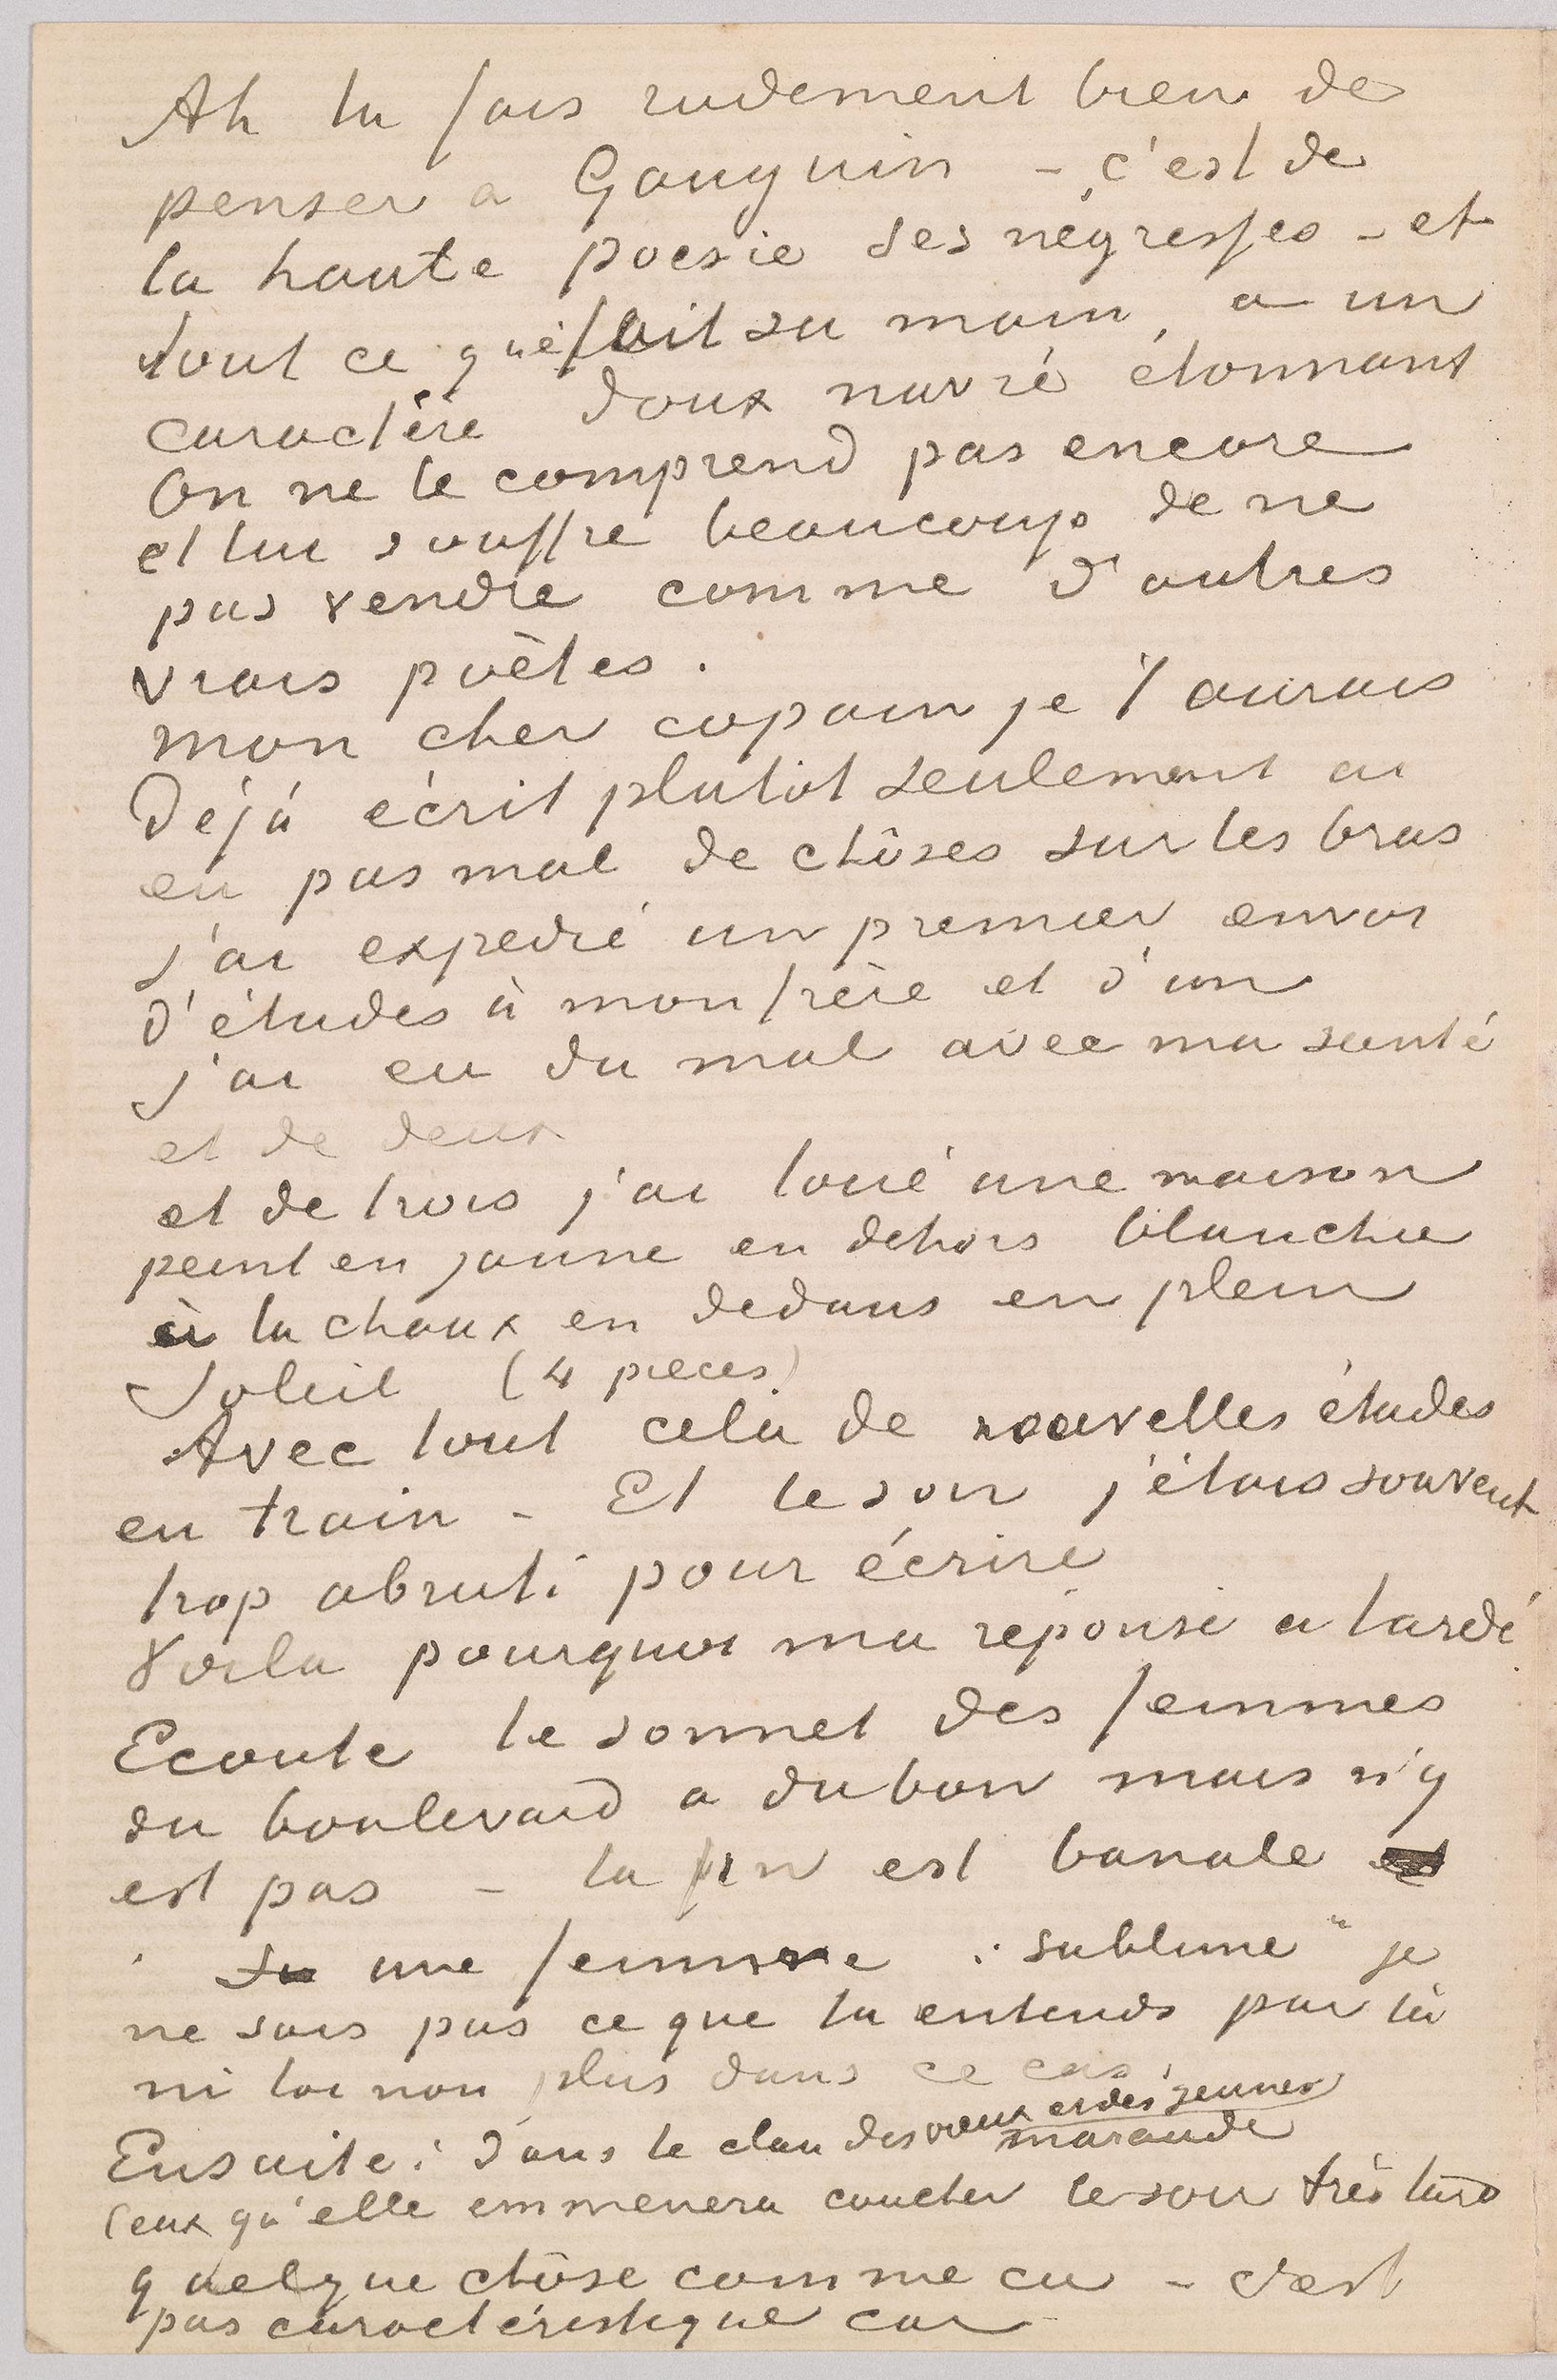 Ah tu fais rudement bien de
penser a Gauguin – c'est de
la haute poesie ses négresses – et
tout ce que fait sa main, a un
caractère doux navré étonnant
On ne le comprend pas encore
et lui souffre beaucoup de ne
pas vendre comme d'autres
vrais poètes.
mon cher copain je t'aurais
Déjà écrit plutôt seulement ai
eu pas mal de chôses sur les bras
J'ai expedié un premier envoi
d'études à mon frère et d'un
j'ai eu du mal avec ma santé
et de deux
et de trois j'ai loué une maison
peint en jaune en dehors blanchie
à la chaux en dedans en plein
Soleil (4 pieces)
Avec tout cela de nouvelles études
en train – Et le soir j'étais souvent
trop abruti pour écrire
Voila pourquoi ma réponse a tardé
Ecoute le sonnet des femmes
du boulevard a du bon mais n'y
est pas – la fin est banale
une femme "sublime" je
ne sais pas ce que tu entends par là
ni toi non plus dans ce cas.
Ensuite: Dans le clan des vieux et des jeunes maraude
Ceux qu'elle emmenera coucher le soir très tard
quelque chôse comme ca – c'est
pas caractéristique car